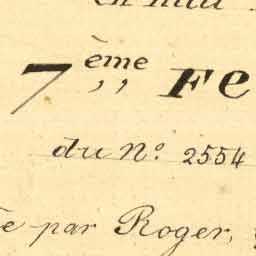 7ème Fe
du No. 2554
par Roger,